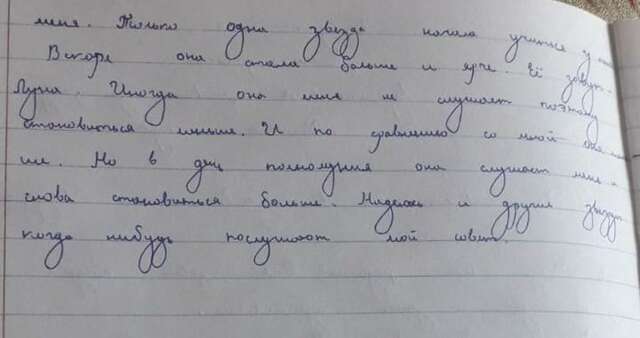 меня. Только одна звезда начала учиться у
Вскоре она стала больше и ярче. Её зовут
Луна. Иногда она меня не слушает поэтому
становиться меньше. И по сравнению со мной она
ше. Но в день полнолуния она слушает меня и
снова становиться больше. Надеюсь и другие звёзды
когда нибудь послушают мой совет.